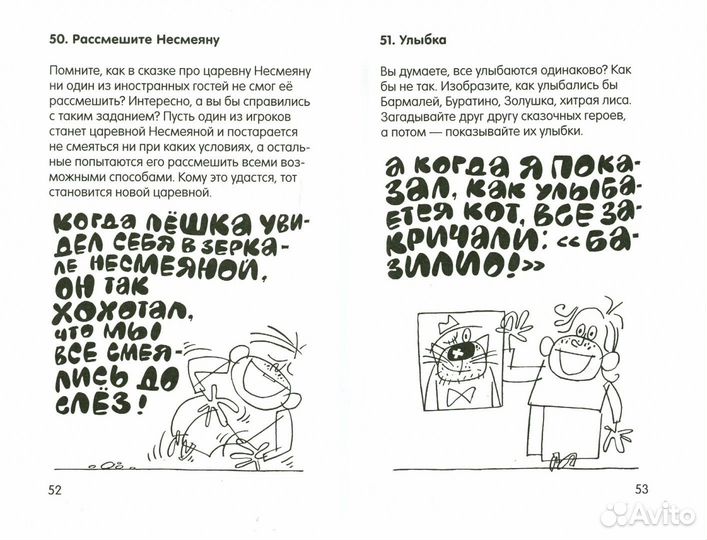 50. Рассмешите Несмеяну
Помните, как в сказке про царевну Несмеяну
ни один из иностранных гостей не смог её
рассмешить? Интересно, а вы бы справились
с таким заданием? Пусть один из игроков
станет царевной Несмеяной и постарается
не смеяться ни при каких условиях, а осталь-
ные попытаются его рассмешить всеми воз-
можными способами. Кому это удастся, тот
становится новой царевной.
КОГДА ЛЁШКА УВИ-
ДЕЛ СЕБЯ В ЗЕРКА-
ЛЕ НЕСМЕЯНОЙ,
ОН ТАК
ХОХОТАЛ,
ЧТО МЫ
ВСЕ СМЕЯ-
ЛИСЬ ДО
СЛЁЗ!
52
51. Улыбка
Вы думаете, все улыбаются одинаково? Как
бы не так. Изобразите, как улыбались бы
Бармалей, Буратино, Золушка, хитрая лиса.
Загадывайте друг другу сказочных героев,
а потом — показывайте их улыбки.
А КОГДА Я ПОКА-
ЗАЛ, КАК УЛЫБА-
ЕТСЯ КОТ, ВСЕ ЗА-
КРИЧАЛИ: «БА-
ЗИЛИО!»
53
Avito